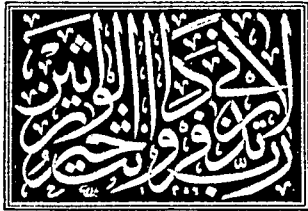 رَبِّ لَا تَذَرْنِي فَرْدًا وَأَنتَ خَيْرُ الْوَارِثِينَ